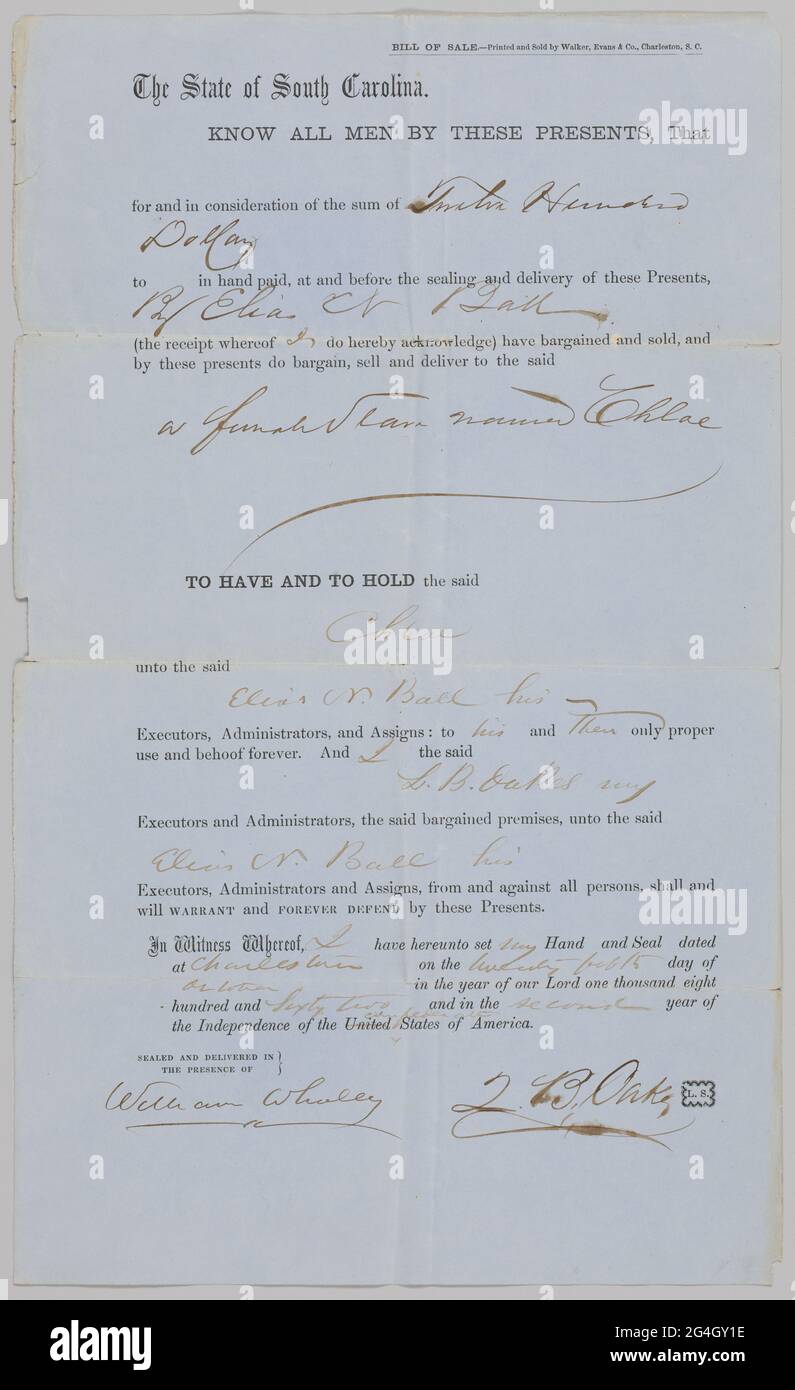 BILL OF SALE.—Printed and Sold by Walker, Evans & Co., Charleston, S. C.
The State of South Carolina.
KNOW ALL MEN BY THESE PRESENTS, That
for and in consideration of the sum of Twelve Hundred
Dollars
to in hand paid, at and before the sealing and delivery of these Presents,
By Elias N Ball
(the receipt whereof I do hereby acknowledge) have bargained and sold, and
by these presents do bargain, sell and deliver to the said
a female Slave named Chloe
TO HAVE AND TO HOLD the said
Chloe
unto the said
Elias N. Ball his
Executors, Administrators, and Assigns: to his and Their only proper
use and behoof forever. And I the said
L. B. Oakes my
Executors and Administrators, the said bargained premises, unto the said
Elias N. Ball his
Executors, Administrators and Assigns, from and against all persons, shall and
will WARRANT and FOREVER DEFEND by these Presents.
In Witness Whereof, I have hereunto set my Hand and Seal dated
at Charleston on the twenty fifth day of
October in the year of our Lord one thousand eight
hundred and Sixty two and in the second year of
the Independence of the United States of America.
SEALED AND DELIVERED IN
THE PRESENCE OF
William Whaley Z. B. Oakes L. S.
alamy
Image ID: 2G4GY1E
www.alamy.com